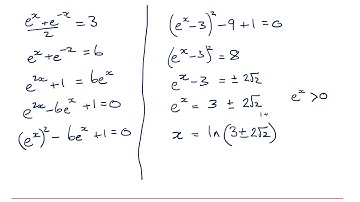 (eˣ + e⁻ˣ)/2 = 3
eˣ + e⁻ˣ = 6
e²ˣ + 1 = 6eˣ
e²ˣ - 6eˣ + 1 = 0
(eˣ)² - 6eˣ + 1 = 0
(eˣ - 3)² - 9 + 1 = 0
(eˣ - 3)² = 8
eˣ - 3 = ± 2√2
eˣ = 3 ± 2√2
eˣ > 0
x = ln(3 ± 2√2)